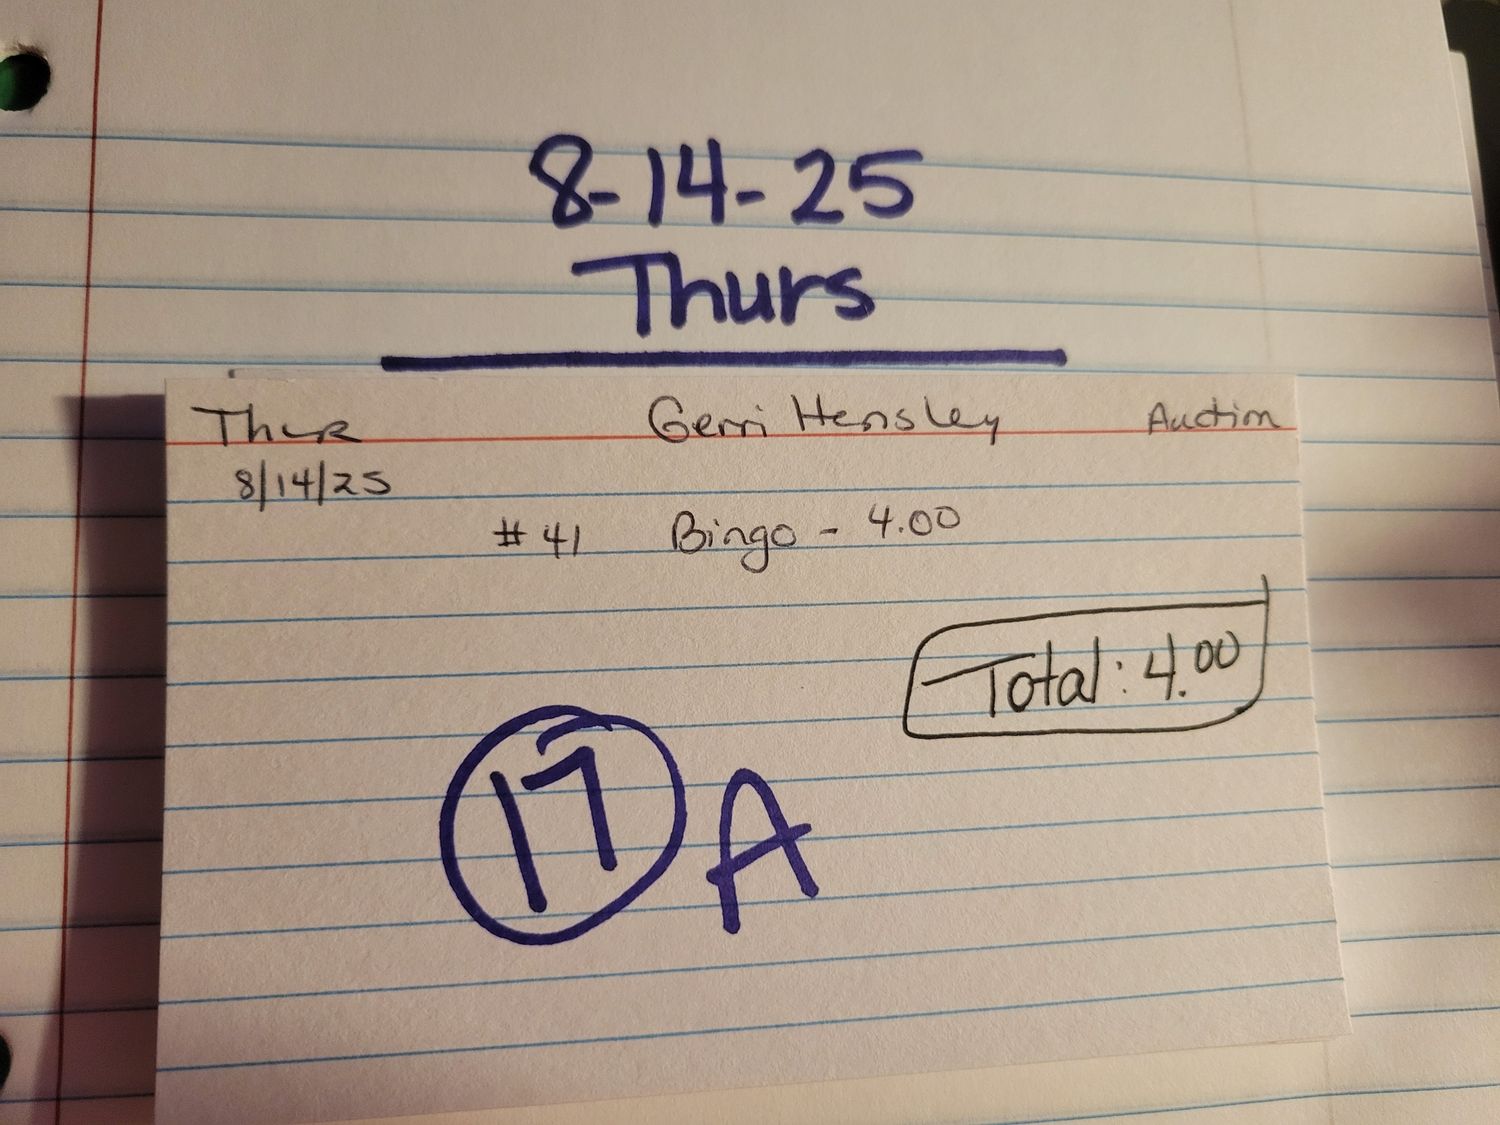 8-14-25
Thurs
Thur Gerri Hensley Auction
8/14/25
#41 Bingo - 4.00
Total: 4.00
17 A